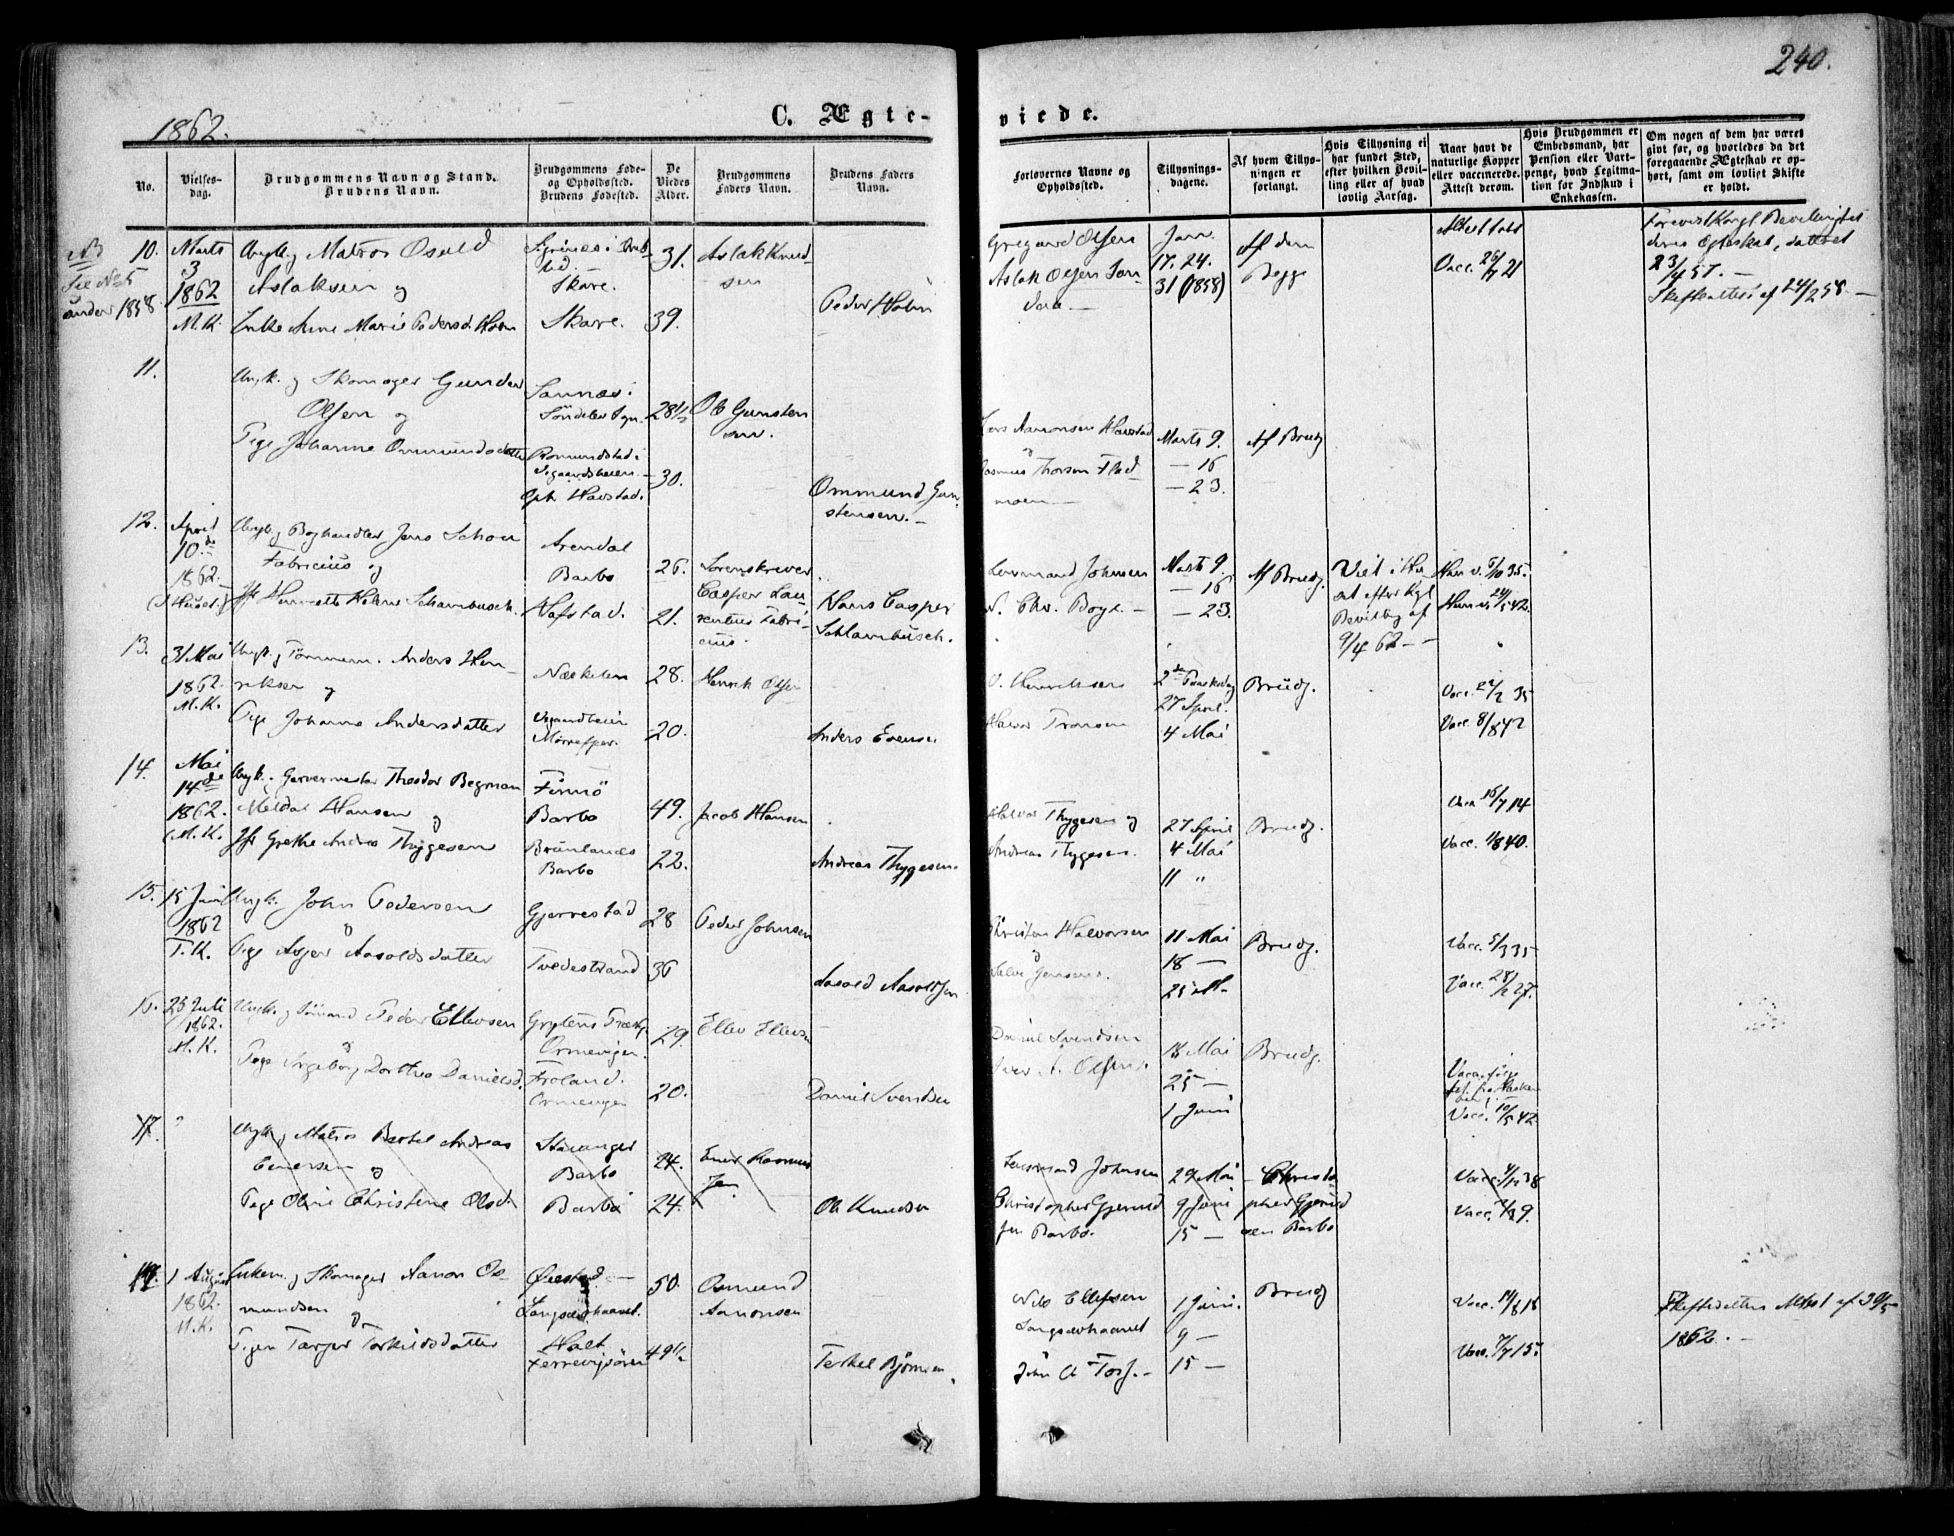 240.
1862.
C. Ægte-
viede.
No.
Vielses-
dag.
Brudgommens Navn og Stand.
Brudens Navn.
Brudgommens Føde-
og Opholdssted.
Brudens Fødested.
De
Viedes
Alder.
Brudgommens
Faders Navn.
Brudens Faders
Navn.
Forlovernes Navne og
Opholdssted.
Tillysnings-
dagene.
Af hvem Tillys-
ningen er
forlangt.
Hvis Tillysning ei
har fundet Sted,
efter hvilken Bevil-
ling eller af hvad
lovlig Aarsag.
Naar havt de
naturlige Kopper
eller vaccinerede.
Attest derom.
Hvis Brudgommen er
Embedsmand, har
Pension eller Vart-
penge, hvad Legitima-
tion for Indskud i
Enkekassen.
Om nogen af dem har været
givt før, og hvorledes da det
foregaaende Ægteskab er op-
hørt, samt om lovligt Skifte
er holdt.
NB
See No 5
under 1858.
10.
Marts
3
1862
M.K.
Ungk. og Matros Osuld
Aslaksen og
Enke Anne Marie Pedersd. Holm
Skare.
Skare.
31.
39.
Aslak Knud-
sen
Peder Holm
Gregard Olsen
Aslak Olsen San
Jan.
17. 24.
31 (1858)
Af dem
Begge
Vacc. 26/7 21
Forevist Kongl. Bevilling til
deres Egteskab, dateret
23/4 57. —
Skifteattest af 24/2 58 —
11.
Ungk. og Skomager Gunder
Olsen og
Pige Johanne Ommundsdatter
Sannæs i
Søndeler Sgn.
Romundstad i
Vegaardsheien
Oph. Havstad.
28 1/2
30.
Ole Gunsten
sen.
Ommund Gun-
stensen. —
Lars Aanonsen Havstad
og
Rasmus Thorsen Flad-
moen —
Marts 9.
— 16
— 23.
Af Brudg
12.
April
10de
1862.
(I Huset)
Ungk. og Boghandler Jens Schou
Fabricius og
Jfr Henriette Helene Schambusch.
Arendal
Barbo
Hafstad.
26.
21.
Sorenskriver
Casper Lau-
rentius Fabri-
cius.
Hans Casper
Schlambusch.
Lensmand Johnsen
N. Chr. Boye. —
Marts 9.
— 16
— 23.
Af Brudg.
Viet i Hu-
set efter Kgl
Bevilling af
9/4 62 — —
Han v. 5/10 35.
Hun v. 24/5 42.
13.
31 Mai
1862.
M.K.
Ungk. og Tømmerm. Anders Hen-
riksen og
Pige Johanne Andersdatter
Næskilen
Vegaardsheien
28.
20.
Henrik Olsen
Anders Evense
O. Henriksen
Halvor Tronsen
2den Paaskedag
27 April.
4 Mai
Brudg.
Vacc. 24/2 35
Vacc. 8/8 42
14.
Mai
14de
1862.
(M.K.
Ungk. Garvermester Theodor Begman
Meldal Hansen og
Jfr Grethe Andrea Thygesen
Barbo
Brünlanæs
Barbo
49.
22.
Jacob Hansen
Andreas Thygesen.
Halvor Thygesen og
Andreas Thygesen.
27 April
4 Mai
11 "
Brudg.
Vacc 16/7 14
Vacc. 1/8 40.
15.
15 Juni
1862
T.K.
Ungk. John Pedersen
og
Pige Asjer Aasoldsdatter
Gjerrestad
Tvedestrand
28
36
Peder Johnsen
Aasold Aasoldsen
Christian Halvorsen
og
Salve Jensen.
11 Mai
18 —
25 M.
Brudg.
Vacc. 5/3 35
Vacc. 28/12 27.
16.
25 Juli
1862.
M.K.
Ungk. og Sømand Peder Ellevsen
og
Pige Ingeborg Dorthea Danielsd.
Ormevigen.
Froland.
Ormevigen
29.
20.
Ellev Ellevsen
Daniel Svendsen
Daniel Svendsen
Iver A. Olsen.
18 Mai
25 —
1 Juni
Brudg.
Vacc. 10/5 42
17.
"
Ungk. og Matros Bertel Andreas
Einersen og
Pige Oline Christine Olsd.
Stavanger
Barbo
Barbo
24.
24.
Einer Rasmus
sen
Ole Knudsen
Lensmand Johnsen
Christopher Gjerud
sen Barbo.
29 Mai
9 Juni
15 —
— Christo
pher Gjerud
sen Barbo
Vacc. 4/12 38
Vacc. 7/7 39.
18.
1 August
1862.
M.K.
Enkem. og Skomager Aanon Os-
mundsen
og
Pigen Tarjer Torkildsdatter
Øiestad —
Langsævhaavet.
Holt
50.
49 1/2
Osmund
Aanonsen
Terkel Bjørnsen.
Nils Ellefsen
Langsævhaavet
John A Torj. —
1 Juni.
9 —
15 —
Brudg
Vacc. 14/8 18
Vacc. 7/7 15.
Skifterettens Attest af 30/5
1862. —